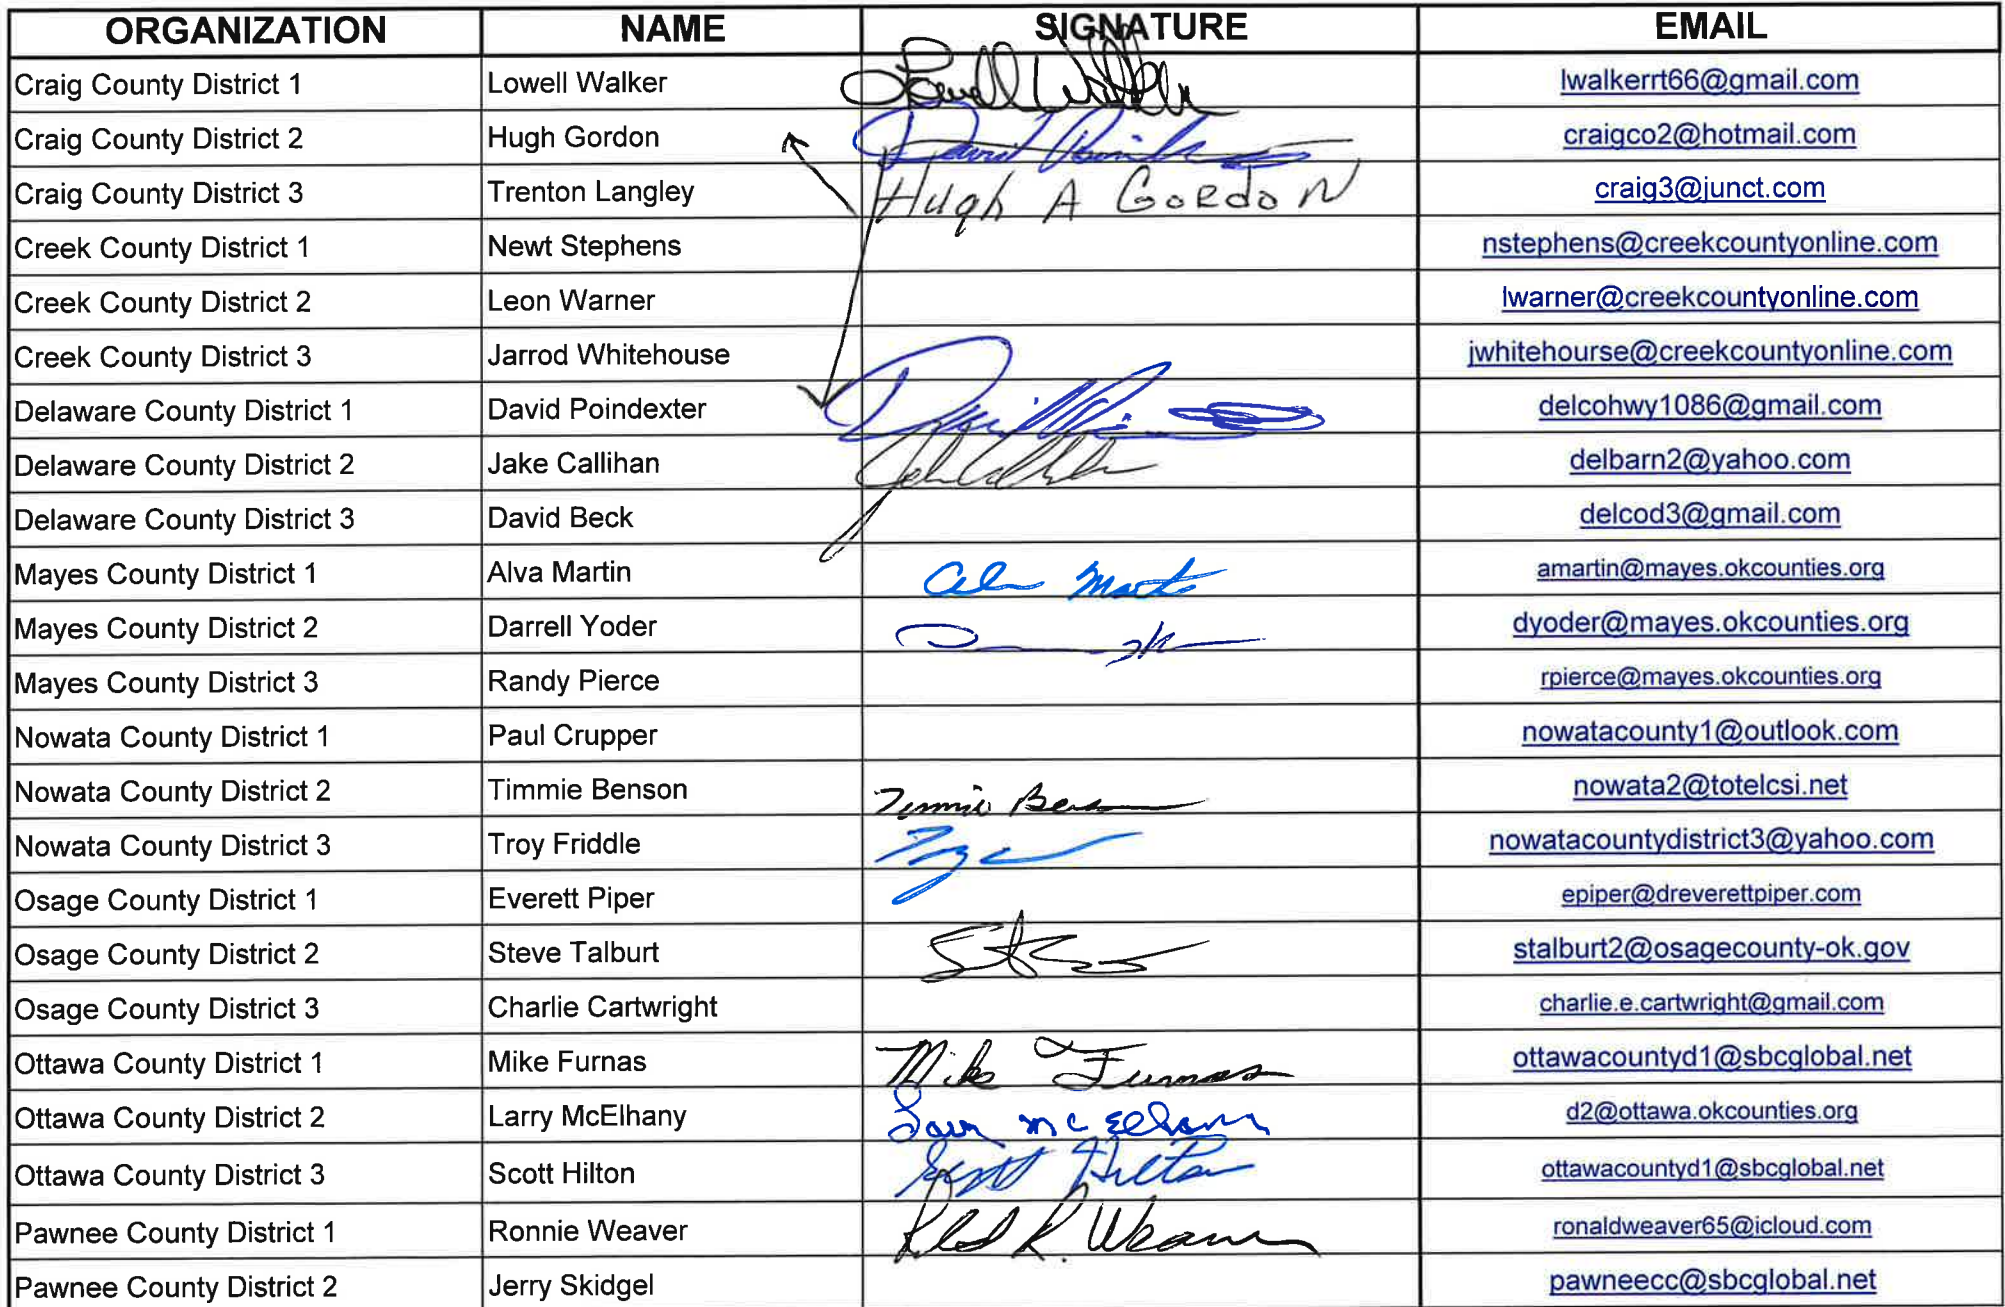 ORGANIZATION NAME SIGNATURE EMAIL
Craig County District 1 Lowell Walker Lowell Walker lwalkerrt66@gmail.com
Craig County District 2 Hugh Gordon David craigco2@hotmail.com
Craig County District 3 Trenton Langley Hugh A GoRdoN craig3@junct.com
Creek County District 1 Newt Stephens nstephens@creekcountyonline.com
Creek County District 2 Leon Warner lwarner@creekcountyonline.com
Creek County District 3 Jarrod Whitehouse jwhitehourse@creekcountyonline.com
Delaware County District 1 David Poindexter delcohwy1086@gmail.com
Delaware County District 2 Jake Callihan delbarn2@yahoo.com
Delaware County District 3 David Beck delcod3@gmail.com
Mayes County District 1 Alva Martin amartin@mayes.okcounties.org
Mayes County District 2 Darrell Yoder dyoder@mayes.okcounties.org
Mayes County District 3 Randy Pierce rpierce@mayes.okcounties.org
Nowata County District 1 Paul Crupper nowatacounty1@outlook.com
Nowata County District 2 Timmie Benson nowata2@totelcsi.net
Nowata County District 3 Troy Friddle nowatacountydistrict3@yahoo.com
Osage County District 1 Everett Piper epiper@dreverettpiper.com
Osage County District 2 Steve Talburt stalburt2@osagecounty-ok.gov
Osage County District 3 Charlie Cartwright charlie.e.cartwright@gmail.com
Ottawa County District 1 Mike Furnas Mike Furnas ottawacountyd1@sbcglobal.net
Ottawa County District 2 Larry McElhany d2@ottawa.okcounties.org
Ottawa County District 3 Scott Hilton Scott Hilton ottawacountyd1@sbcglobal.net
Pawnee County District 1 Ronnie Weaver R. Weaver ronaldweaver65@icloud.com
Pawnee County District 2 Jerry Skidgel pawneecc@sbcglobal.net